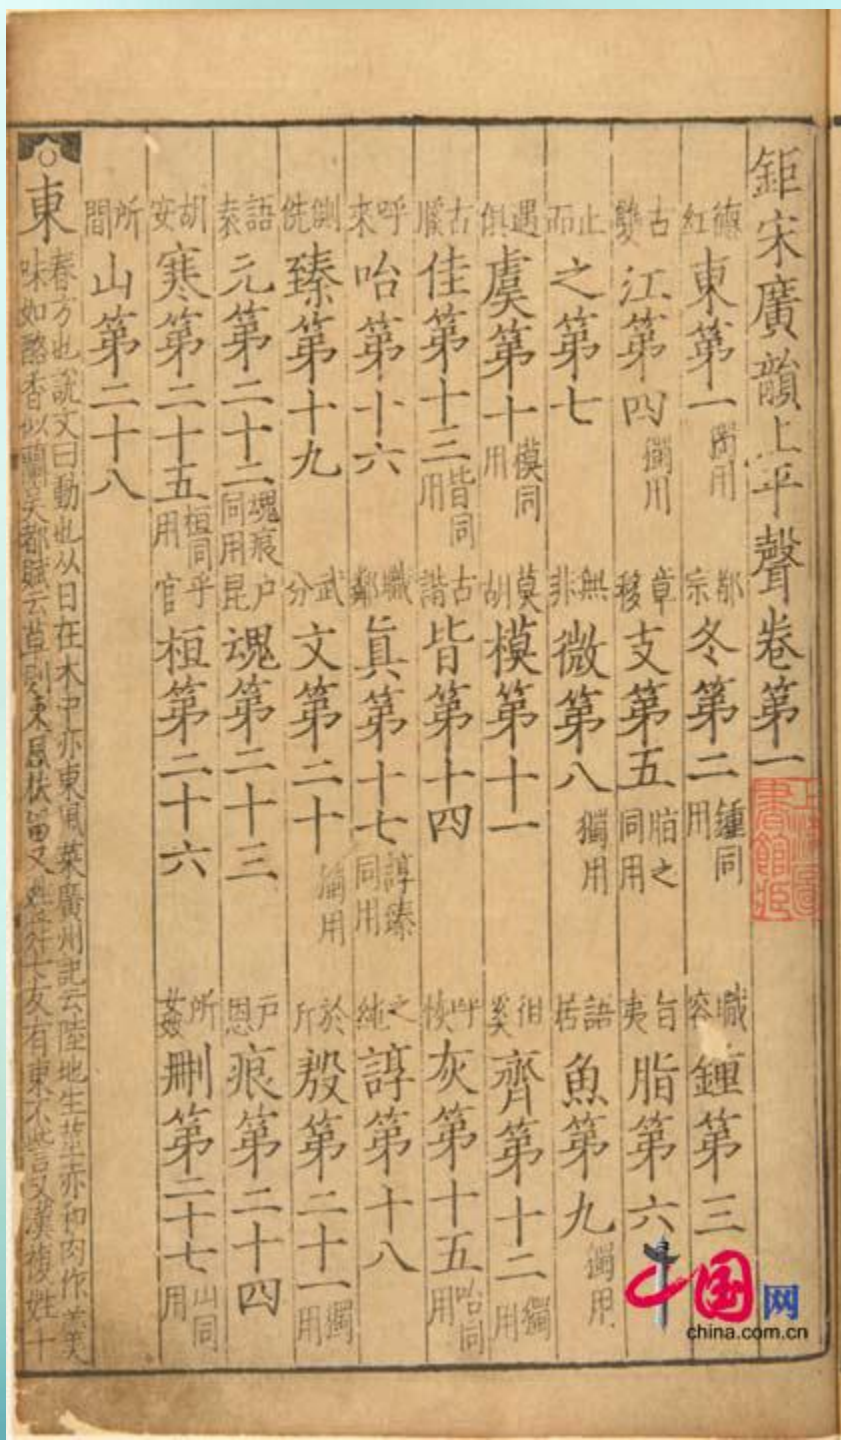 鉅宋廣韻上平聲卷第一
德紅東第一獨用 都宗冬第二鍾同用 職容鍾第三
古雙江第四獨用 章移支第五脂之同用 旨夷脂第六
止而之第七 無非微第八獨用 語居魚第九獨用
遇俱虞第十模同用 莫胡模第十一 徂奚齊第十二獨用
古膎佳第十三皆同用 古諧皆第十四 呼恢灰第十五咍同用
呼來咍第十六 職鄰真第十七諄臻同用 之純諄第十八
側詵臻第十九 武分文第二十獨用 於斤殷第二十一獨用
語袁元第二十二魂痕同用 户昆魂第二十三 户恩痕第二十四
胡安寒第二十五桓同用 乎官桓第二十六 所姦刪第二十七山同用
所間山第二十八
東
春方也說文曰動也从日在木中亦東風菜廣州記云陸地生莖赤和肉作羹
味如酪香似蘭吳都賦云草則東風扶留又姓 友有東不訾又漢複姓十
上海圖書館
中国网
china.com.cn